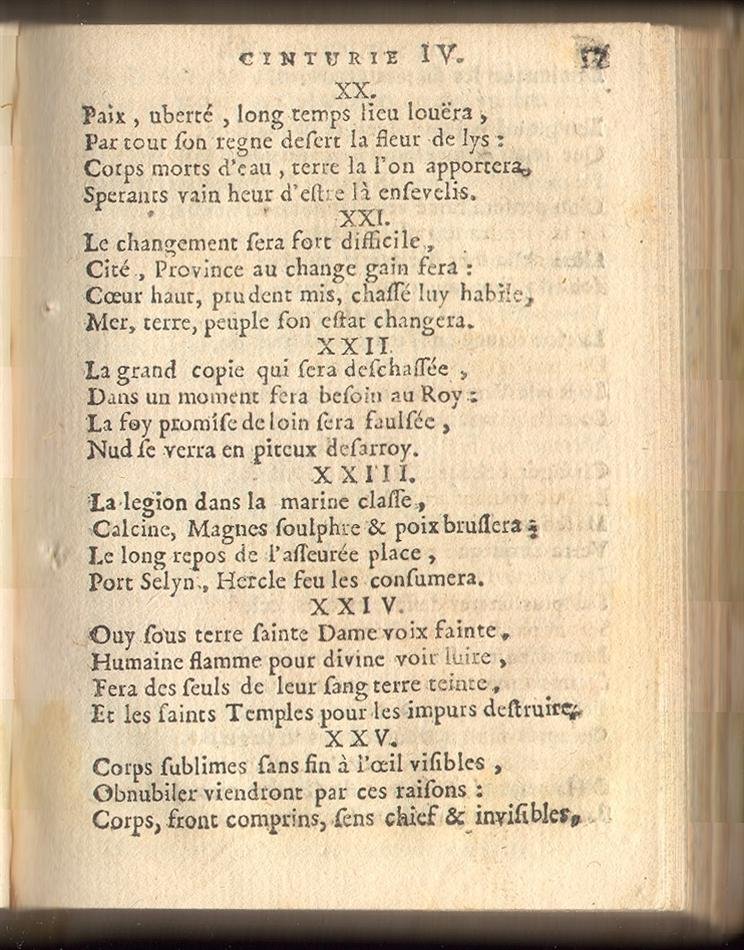 CINTURIE IV. 57
XX.
Paix, uberté, long temps lieu louëra,
Par tout ſon regne deſert la fleur de lys :
Corps morts d'eau, terre la l'on apportera,
Sperants vain heur d'eſtre là enſevelis.
XXI.
Le changement ſera fort difficile,
Cité, Province au change gain fera :
Cœur haut, prudent mis, chaſſé luy habile,
Mer, terre, peuple ſon eſtat changera.
XXII.
La grand copie qui ſera deſchaſſée,
Dans un moment fera beſoin au Roy :
La foy promiſe de loin ſera faulſée,
Nud ſe verra en piteux deſarroy.
XXIII.
La legion dans la marine claſſe,
Calcine, Magnes ſoulphre & poix bruſlera :
Le long repos de l'aſſeurée place,
Port Selyn, Hercle feu les conſumera.
XXIV.
Ouy ſous terre ſainte Dame voix fainte,
Humaine flamme pour divine voir luire,
Fera des ſeuls de leur ſang terre teinte,
Et les ſaints Temples pour les impurs deſtruire.
XXV.
Corps ſublimes ſans fin à l'œil viſibles,
Obnubiler viendront par ces raiſons :
Corps, front comprins, ſens chief & inviſibles,